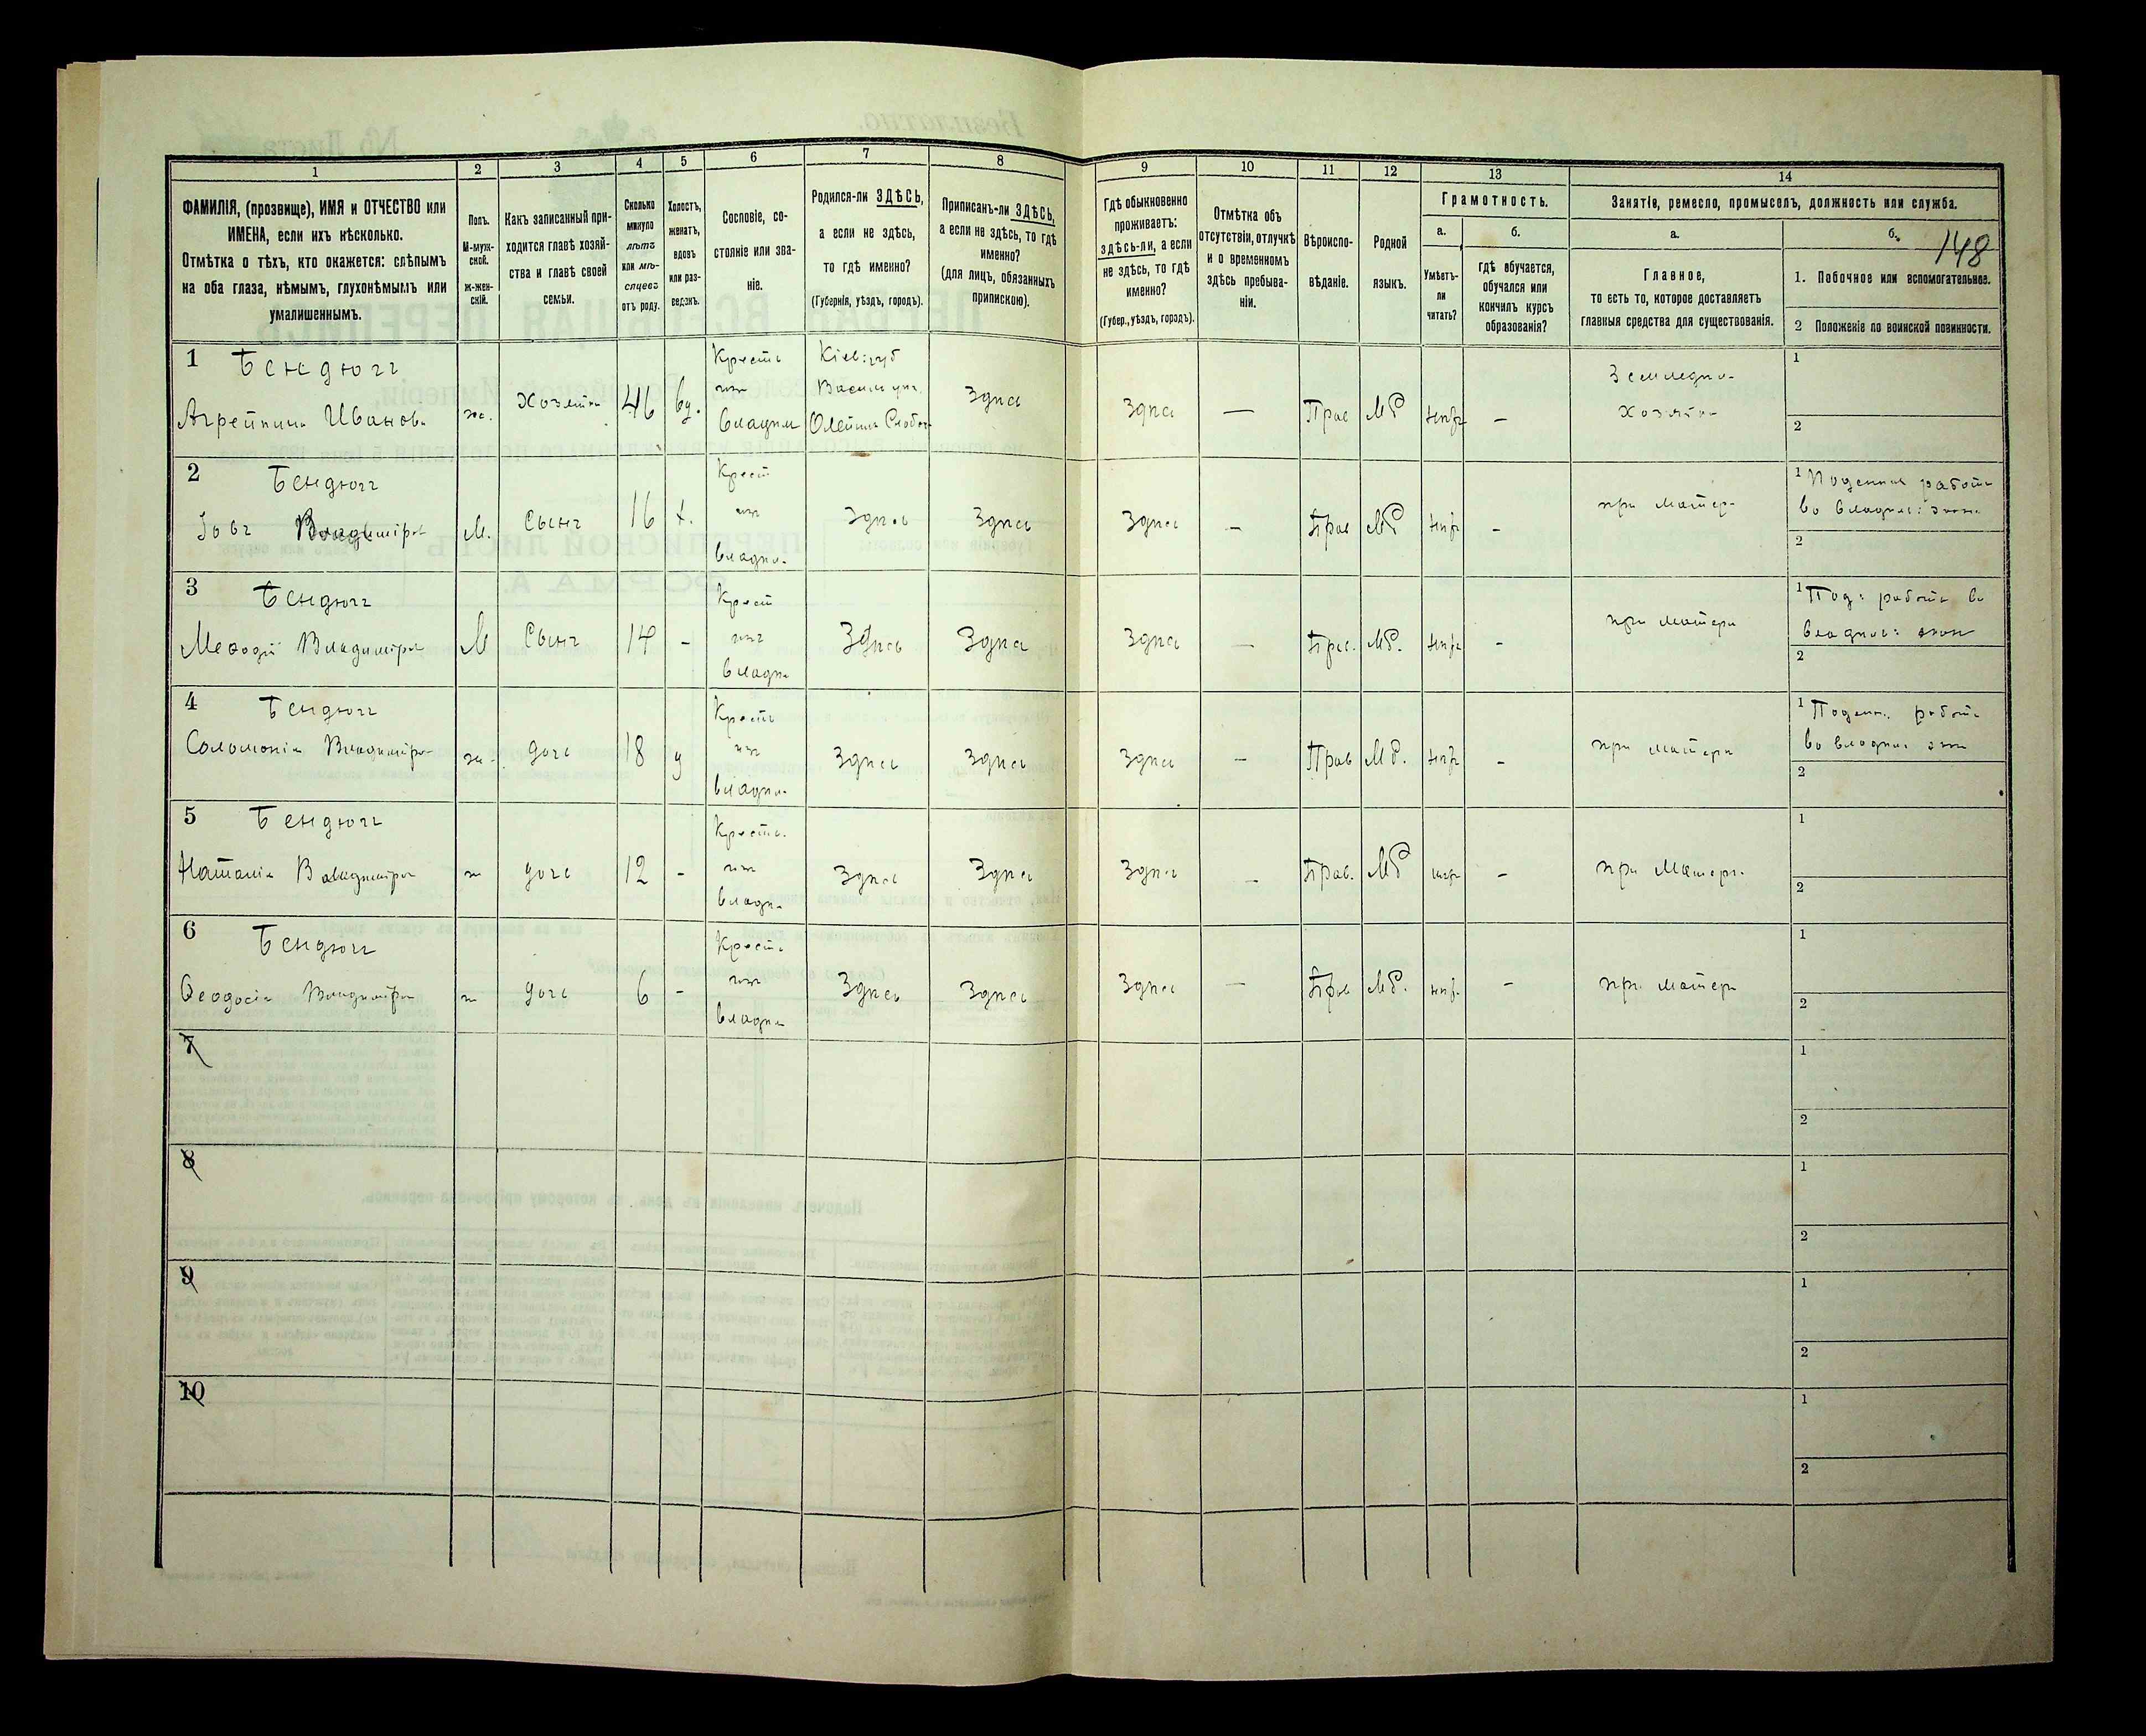 1
2
3
4
5
6
7
8
9
10
11
12
13
14
ФАМИЛІЯ, (прозвище), ИМЯ и ОТЧЕСТВО или
ИМЕНА, если ихъ нѣсколько.
Отмѣтка о тѣхъ, кто окажется: слѣпымъ
на оба глаза, нѣмымъ, глухонѣмымъ или
умалишеннымъ.
Полъ.
М-муж-
ской.
ж-жен-
скій.
Какъ записанный при-
ходится главѣ хозяй-
ства и главѣ своей
семьи.
Сколько
минуло
лѣтъ
или мѣ-
сяцевъ
отъ роду.
Холостъ,
женатъ,
вдовъ
или раз-
веденъ.
Сословіе, со-
стояніе или зва-
ніе.
Родился-ли ЗДѢСЬ,
а если не здѣсь,
то гдѣ именно?
(Губернія, уѣздъ, городъ).
Приписанъ-ли ЗДѢСЬ,
а если не здѣсь, то гдѣ
именно?
(для лицъ, обязанныхъ
припискою).
Гдѣ обыкновенно
проживаетъ:
здѣсь-ли, а если
не здѣсь, то гдѣ
именно?
(Губер., уѣздъ, городъ).
Отмѣтка объ
отсутствіи, отлучкѣ
и о временномъ
здѣсь пребыва-
ніи.
Вѣроиспо-
вѣданіе.
Родной
языкъ.
Грамотность.
а.
Умѣетъ-
ли
читать?
б.
гдѣ обучается,
обучался или
кончилъ курсъ
образованія?
Занятіе, ремесло, промыселъ, должность или служба.
а.
Главное,
то есть то, которое доставляетъ
главныя средства для существованія.
б.
148
1. Побочное или вспомогательное.
2 Положеніе по воинской повинности.
1 Бендюгъ
Агрепина Иванов.
ж.
Хозяйка
46
вд.
Кресть
изъ
владѣл
Кіев: губ
Васильк уѣз.
Олейник Слобод
Здѣсь
Здѣсь
—
Прав
МР
негр
–
Земледѣл-
хозяйка
1
2
2 Бендюгъ
Іовъ Владиміро
М.
Сынъ
16
х.
Крест
изъ
владѣл.
Здѣсь
Здѣсь
Здѣсь
–
Прав
МР
негр
–
при матер.
1 Поденная работа
во владѣл: экон.
2
3 Бендюгъ
Меѳодій Владиміро
М
Сынъ
14
-
Крест
изъ
владѣл
Здѣсь
Здѣсь
Здѣсь
—
Прав.
МР.
негр
-
при матери
1 Под: работа во
владѣл: экон
2
4 Бендюгъ
Соломонія Владиміро
ж.
дочь
18
д
Кресть
изъ
владѣл.
Здѣсь
Здѣсь
Здѣсь
–
Прав
МР.
негр
–
при матери
1 Поденн. работа
во владѣл экон
2
5 Бендюгъ
Наталія Владиміро
ж
дочь
12
-
Кресть.
изъ
владѣл.
Здѣсь
Здѣсь
Здѣсь
–
Прав.
МР
негр
–
при матери.
1
2
6 Бендюгъ
Ѳеодосія Владиміро
ж
дочь
6
-
Кресть
изъ
владѣл
Здѣсь
Здѣсь
Здѣсь
—
Прав
МР.
негр.
–
при матери
1
2
7
1
2
8
1
2
9
1
2
10
1
2